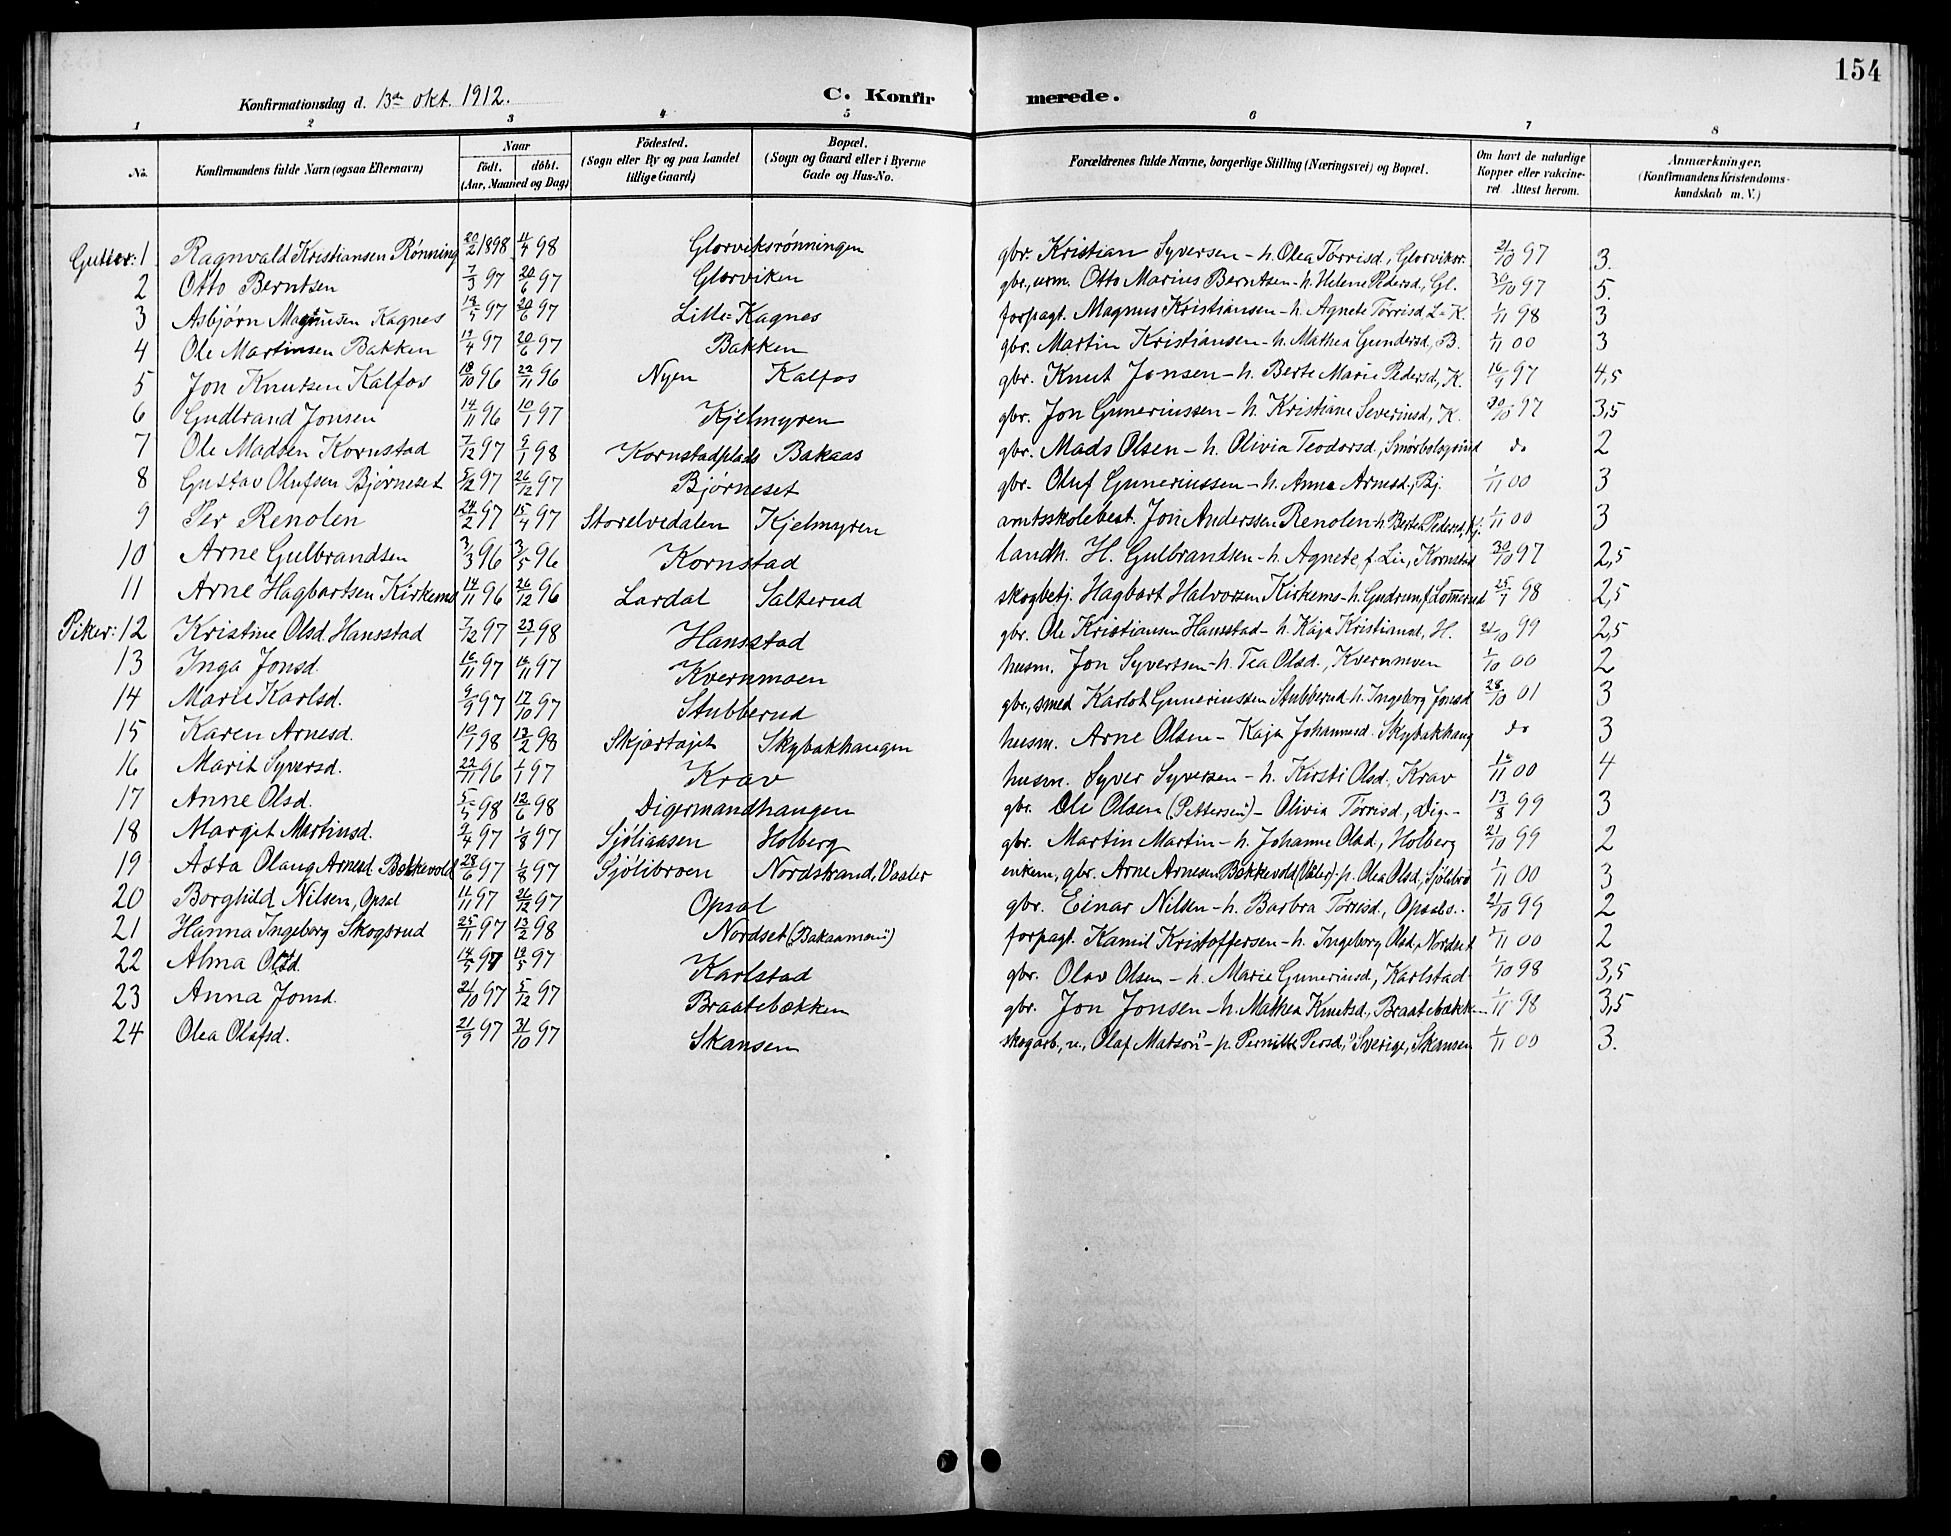 154
Konfirmationsdag d. 13de okt. 1912. C. Konfirmerede.
1 2 3 4 5 6 7 8
No. Konfirmandens fulde Navn (ogsaa Efternavn) Naar født. døbt. (Aar, Maaned og Dag) Fødested. (Sogn eller By og paa Landet tillige Gaard) Bopæl. (Sogn og Gaard eller i Byerne Gade og Hus-No. Forældrenes fulde Navne, borgerlige Stilling (Næringsvei) og Bopæl. Om havt de naturlige Kopper eller vakcineret Attest herom. Anmærkninger. (Konfirmandens Kristendomskundskab m. V.)
Gutter: 1 Ragnvald Kristiansen Rønning 20/2 1898 11/4 98 Glorviksrønningen gbr. Kristian Syversen - h. Olea Törrisd., Glorviksr. 21/10 97 3.
2 Otto Berntsen 7/3 97 20/6 97 Glorviken gbr., urm. Otto Marius Berntsen - h. Helene Pedersd., Gl. 30/10 97 5.
3 Asbjørn Magnusen Kagnes 19/5 97 20/6 97 Litle=Kagnes forpagt. Magnus Kristiansen - h. Agnete Törrisd. L-K. 1/11 98 3
4 Ole Martinsen Bakken 12/4 97 20/6 97 Bakken gbr. Martin Kristiansen - h. Mathea Gundersd., B. 1/11 00 3
5 Jon Knutsen Kalfos 18/10 96 22/11 96 Nyen Kalfos gbr. Knut Jonsen - h. Berte Marie Pedersd., K. 16/9 97 4,5
6 Gudbrand Jonsen 14/11 96 10/1 97 Kjelmyren gbr. Jon Gunerinssen - h. Kristiane Severinsd., K. 30/10 97 3,5
7 Ole Madsen Kornstad 7/12 97 9/1 98 Kornstadplads Bakaas gbr. Mads Olsen - h. Olivia Teodorsd., do 2
8 Gustav Olufsen Bjørneset 5/12 97 26/12 97 Bjørneset gbr. Oluf Gunerinssen - h. Anna Arnesd., Bj. 1/11 00 3
9 Per Renolen 24/2 97 15/4 97 Storelvedalen Kjelmyren amtsskolebest. Jon Anderssen Renolen - h. Berte Pedersd., Kj. 1/11 00 3
10 Arne Gulbrandsen 3/3 96 3/5 96 Kornstad landh. H. Gulbrandsen - h. Agnete, f. Lie, Kornstad 30/10 97 2,5
11 Arne Hagbartsen Kirkemo 14/11 96 26/12 96 Lardal Salterud skogbetj. Hagbart Halvorsen Kirkemo - h. Gudrun, f. 25/1 98 2,5
Piker: 12 Kristine Olsd. Hansstad 7/12 97 23/1 98 Hansstad gbr. Ole Kristiansen Hansstad - h. Kaja Kristiansd., H. 21/10 99 2,5
13 Inga Jonsd. 16/11 97 16/11 97 Kvernmoen husm. Jon Syvertsen - h. Tea Olsd., Kvernmoen 1/10 00 2
14 Marie Karlsd. 9/9 97 17/10 97 Stubberud gbr., smed Karlot Gunerinssen Stubberud h. Ingeborg Jonsd. 28/10 01 3
15 Karen Arnesd. 10/1 98 13/2 98 Skjærtajet Skybakhaugen husm. Arne Olsen - Kaja Johannesd. Skybakhaug do 3
16 Marit Syversd. 22/11 96 1/1 97 Krav husm. Syver Syversen - h. Kirsti Olsd., Krav 16/11 00 4
17 Anne Olsd. 5/5 98 12/6 98 Digermandhaugen gbr. Ole Olsen (Pettersen) - Olivia Törrisd., Dig.- 13/8 99 3
18 Margit Martinsd. 2/4 97 1/8 97 Sjøliaasen Holberg gbr. Martin Martin - h. Johanne Olsd., Holberg 21/10 99 2
19 Asta Olaug Arnesd Bækkevold 28/6 97 1/8 97 Sjølibroen Nordstrand, Vaaler enkem., gbr. Arne Arnesen Bækkevold (Våler) - p. Olea Olsd., Sjølibro 1/11 00 3
20 Borghild Nilsen, Opsal 11/11 97 26/12 97 Opsal gbr. Einar Nilsen - h. Barbra Törrisd., Opsal 21/10 99 2
21 Hanna Ingeborg Skogsrud 25/11 97 13/2 98 Nordset (Bakaamoen) forpagt. Kamil Kristoffersen - h. Ingeborg Olsd., Nordset 1/11 00 2
22 Alma Olsd. 14/5 97 19/5 97 Karlstad gbr. Olav Olsen - h. Marie Gunerinsd., Karlstad 1/10 98 3,5
23 Anna Jonsd. 21/10 97 5/12 97 Braatebækken gbr. Jon Jonsen - h. Mathea Knutsd., Braatebækken 1/11 98 3,5
24 Olea Olafsd. 21/9 97 31/10 97 Skansen skogarb., u., Olaf Matson - p. Pernille Persd., Sverige, Skansen 1/11 00 3.